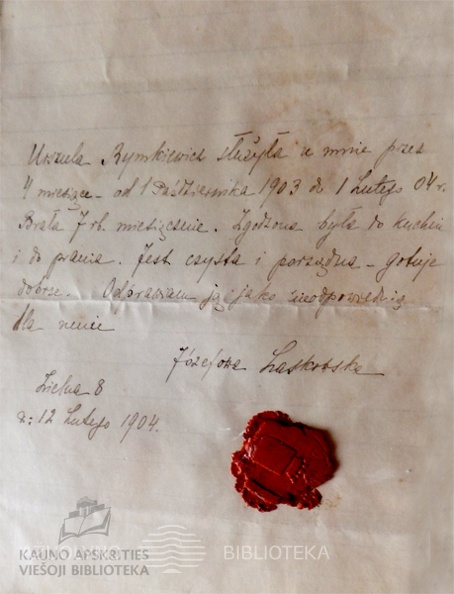 Urszula Rymkiewicz służyła u mnie przez
4 miesiące – od 1 Października 1903 do 1 Lutego 04 r.
Brała 7 rb. miesięcznie. Zgodzona była do kuchni
i do prania. Jest czysta i porządna – gotuje
dobrze. Odprawiam ją jako nieodpowiednią
dla mnie
Józefowa Laskowska
Zielna 8
d: 12 Lutego 1904.
KAUNO APSKRITIES
VIEŠOJI BIBLIOTEKA
BIBLIOTEKA